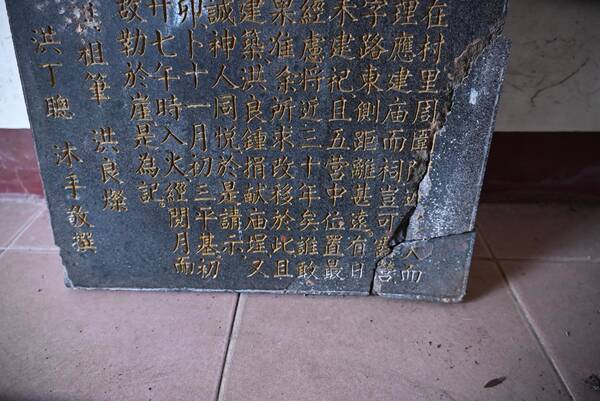 在村里周圍
理應建庙而祠豈可
字路東側距離甚遠有日
未建祀且五營中位置最
經慮將近三十年矣誰敢
果准余所求改移於此且
建築洪良鍾捐献庙埕又
誠神人同悦於是請示
卯卜十一月初三平基初
廿七午時入火經閱月而
故勒於崖是為記
祖筆 洪良燦
洪丁聰 沐手敬撰